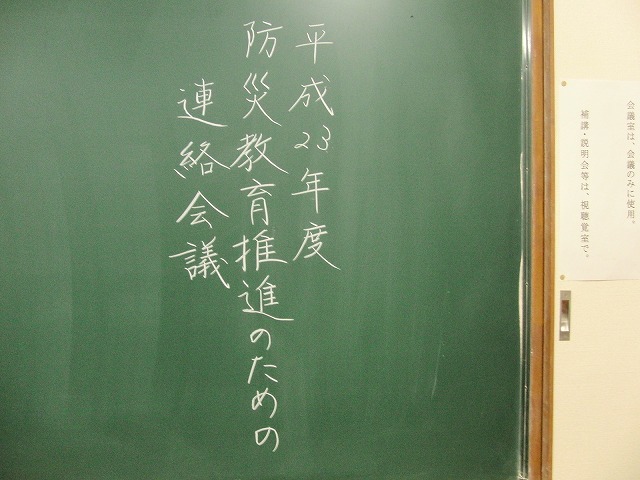 平成23年度
防災教育推進のための
連絡会議
会議室は、会議のみに使用。
補講・説明会等は、視聴覚室で。